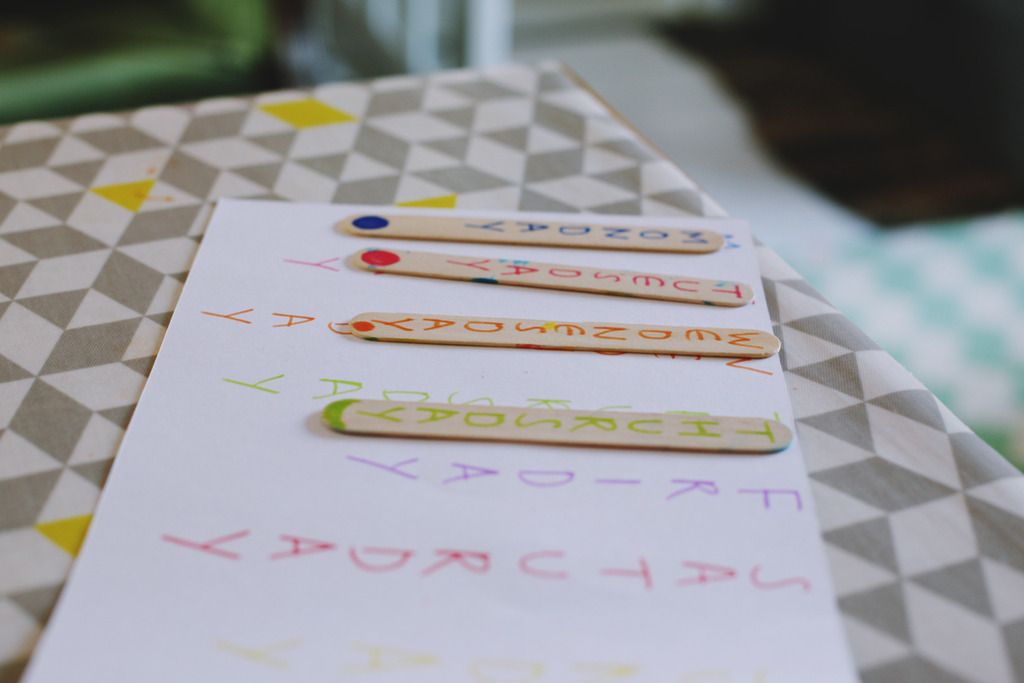 MONDAY
TUESDAY
WEDNESDAY
THURSDAY
FRIDAY
SATURDAY